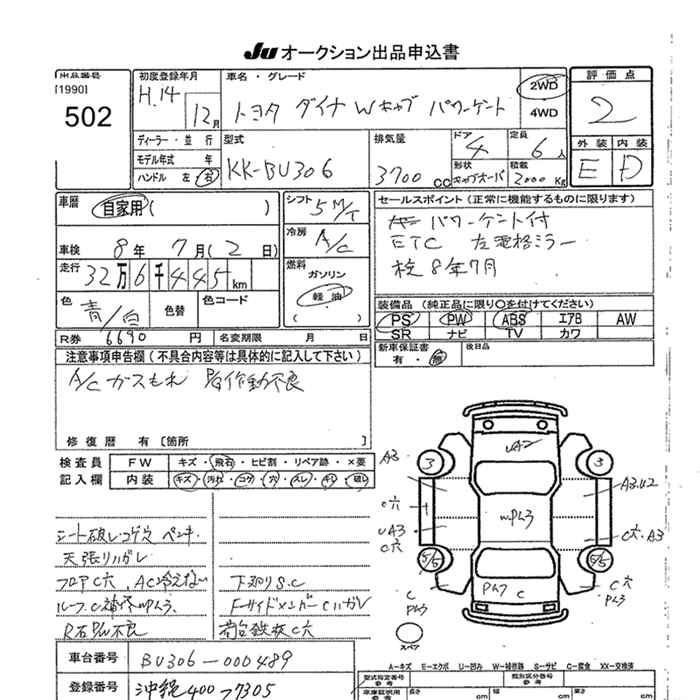 Ju オークション出品申込書
出品番号
[1990]
502
初度登録年月
H.14
12月
車名・グレード
トヨタ ダイナ Wキャブ パワーゲート
2WD
4WD
評価点
2
外装 内装
E D
ディーラー・並行
モデル年式 年
ハンドル 左 右
型式
KK-BU306
排気量
3700 cc
ドア
4
定員
6人
形状
キャブオーバ
積載
2000 Kg
車歴
自家用( )
シフト
5M/T
車検
8年 7月(2日)
冷房
A/C
走行
32万6千445km
燃料
ガソリン
軽油
( )
色
青/白
色替
色コード
R券 6690 円
名変期限 月 日
セールスポイント(正常に機能するものに限ります)
パワーゲート付
ETC 左電格ミラー
検8年7月
装備品(純正品に限り○を付けてください)
PS PW ABS エアB AW
SR ナビ TV カワ
新車保証書
有・無
後日品
注意事項申告欄(不具合内容等は具体的に記入して下さい)
A/C ガスもれ 作動不良
修復歴 有〔箇所 〕
検査員 FW キズ・飛石・ヒビ割・リペア跡・×要
記入欄 内装 キズ・汚れ・コゲ・穴・スレ・キレ・破レ
シート破レコゲ穴 ペンキ
天張リハガレ
フロアC穴、AC冷えない
ルーフ、C補修WPム3
R右P/W不良
下廻りS.C
FサイドメンバーCハガレ
荷台鉄板C穴
A3
3
UA2
3
A3.U2
C穴
UA3
C穴
WPム3
C穴・A3
5/5
5/5
C
Pム3
Pム7 C
C穴
Pム3
スペア
車台番号 BU306-000489
登録番号 沖縄400 7305
A-キズ E-エクボ U-凹み W-補修跡 S-サビ C-腐食 XX-交換済
型式指定番号
参考
類別区分番号
参考
長さ cm
幅 cm
高さ cm